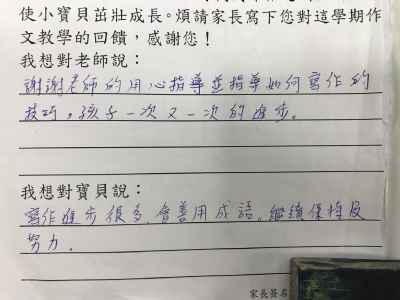 使小寶貝茁壯成長。煩請家長寫下您對這學期作
文教學的回饋，感謝您！
我想對老師說：
謝謝老師的用心指導並指導如何寫作的
技巧，孩子一次又一次的進步。
我想對寶貝說：
寫作進步很多，會善用成語。繼續保持及
努力。
家長簽名